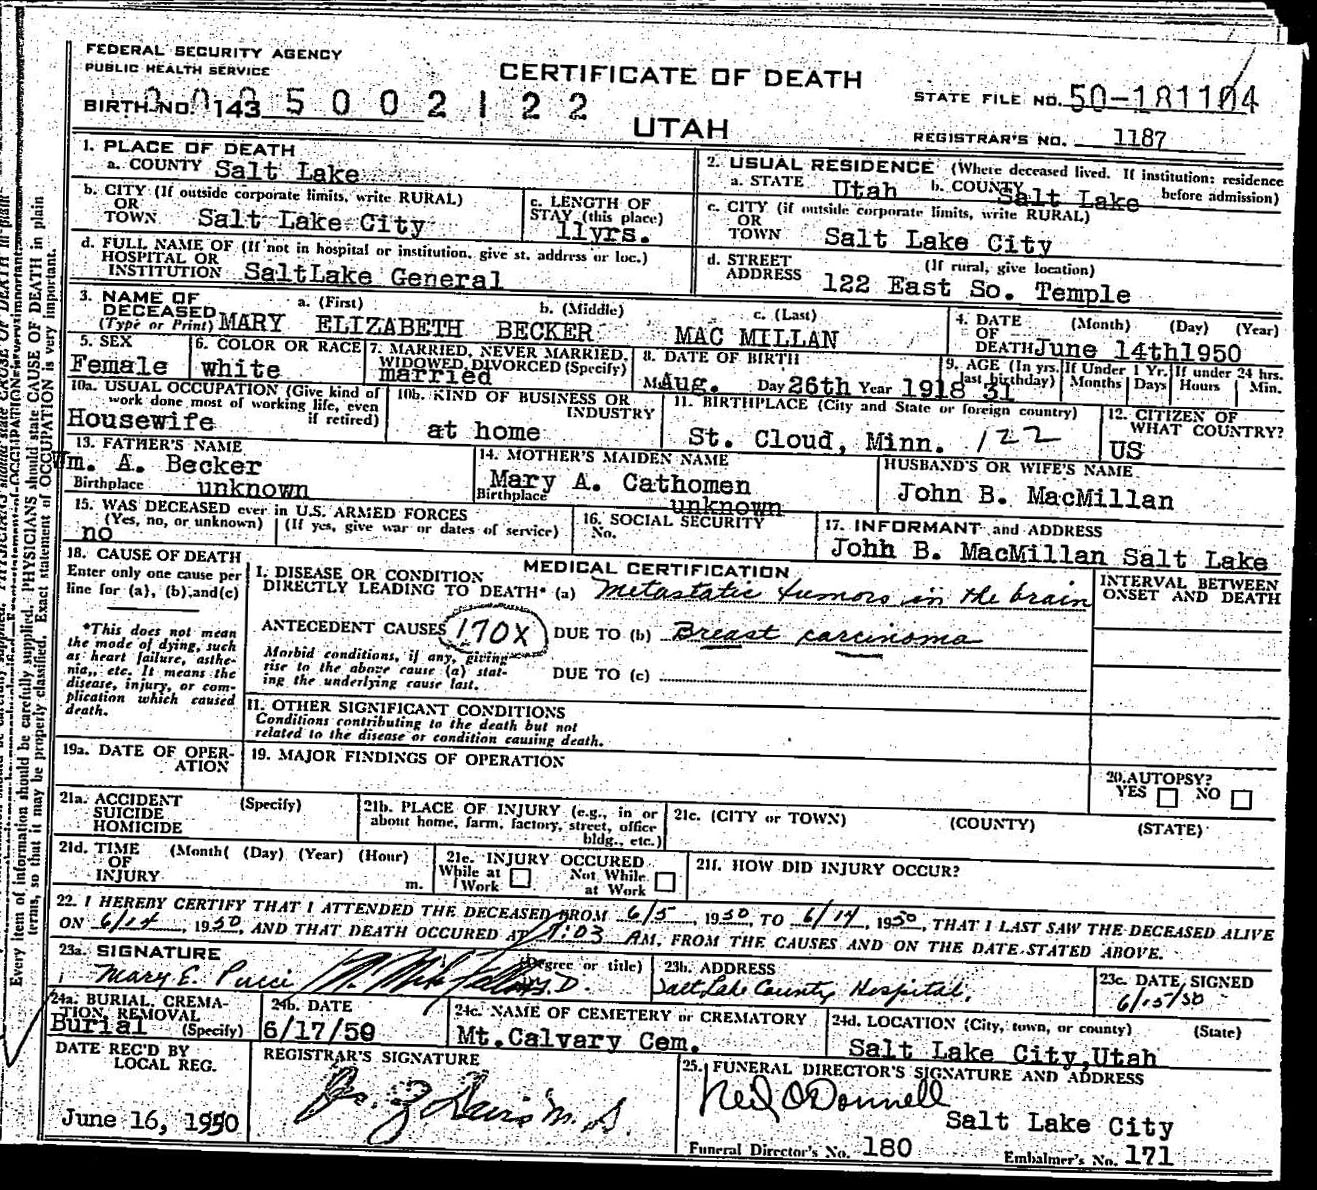 FEDERAL SECURITY AGENCY
PUBLIC HEALTH SERVICE
CERTIFICATE OF DEATH
BIRTH NO. 143 5 0 0 2 1 2 2
UTAH
STATE FILE NO. 50-181104
REGISTRAR'S NO. 1187
1. PLACE OF DEATH
a. COUNTY Salt Lake
b. CITY (If outside corporate limits, write RURAL)
OR
TOWN Salt Lake City
c. LENGTH OF
STAY (this place)
11yrs.
d. FULL NAME OF (If not in hospital or institution, give st. address or loc.)
HOSPITAL OR
INSTITUTION SaltLake General
2. USUAL RESIDENCE (Where deceased lived. If institution: residence
before admission)
a. STATE Utah b. COUNTY Salt Lake
c. CITY (if outside corporate limits, write RURAL)
OR
TOWN Salt Lake City
d. STREET (If rural, give location)
ADDRESS 122 East So. Temple
3. NAME OF
DECEASED
(Type or Print)
a. (First) b. (Middle) c. (Last)
MARY ELIZABETH BECKER MAC MILLAN
4. DATE (Month) (Day) (Year)
OF
DEATH June 14th1950
5. SEX
Female
6. COLOR OR RACE
white
7. MARRIED, NEVER MARRIED,
WIDOWED, DIVORCED (Specify)
married
8. DATE OF BIRTH
Aug. Day 26th Year 1918
9. AGE (In yrs. last birthday) 31
If Under 1 Yr. Months Days
If under 24 hrs. Hours Min.
10a. USUAL OCCUPATION (Give kind of
work done most of working life, even
if retired)
Housewife
10b. KIND OF BUSINESS OR
INDUSTRY
at home
11. BIRTHPLACE (City and State or foreign country)
St. Cloud, Minn. 122
12. CITIZEN OF
WHAT COUNTRY?
US
13. FATHER'S NAME
Wm. A. Becker
Birthplace unknown
14. MOTHER'S MAIDEN NAME
Mary A. Cathomen
Birthplace unknown
HUSBAND'S OR WIFE'S NAME
John B. MacMillan
15. WAS DECEASED ever in U.S. ARMED FORCES
(Yes, no, or unknown) (If yes, give war or dates of service)
no
16. SOCIAL SECURITY
No.
17. INFORMANT and ADDRESS
John B. MacMillan Salt Lake
18. CAUSE OF DEATH
Enter only one cause per
line for (a), (b) and (c)
*This does not mean
the mode of dying, such
as heart failure, asthe-
nia, etc. It means the
disease, injury, or com-
plication which caused
death.
MEDICAL CERTIFICATION
I. DISEASE OR CONDITION
DIRECTLY LEADING TO DEATH* (a) Metastatic tumors in the brain
ANTECEDENT CAUSES 170X DUE TO (b) Breast carcinoma
Morbid conditions, if any, giving
rise to the above cause (a) stat-
ing the underlying cause last.
DUE TO (c)
INTERVAL BETWEEN
ONSET AND DEATH
II. OTHER SIGNIFICANT CONDITIONS
Conditions contributing to the death but not
related to the disease or condition causing death.
19a. DATE OF OPER-
ATION
19. MAJOR FINDINGS OF OPERATION
20. AUTOPSY?
YES NO
21a. ACCIDENT (Specify)
SUICIDE
HOMICIDE
21b. PLACE OF INJURY (e.g., in or
about home, farm, factory, street, office
bldg., etc.)
21c. (CITY or TOWN) (COUNTY) (STATE)
21d. TIME (Month( (Day) (Year) (Hour)
OF
INJURY m.
21e. INJURY OCCURED
While at Work Not While at Work
21f. HOW DID INJURY OCCUR?
22. I HEREBY CERTIFY THAT I ATTENDED THE DECEASED FROM 6/5, 1950 TO 6/14, 1950, THAT I LAST SAW THE DECEASED ALIVE
ON 6/14, 1950, AND THAT DEATH OCCURED AT 1:03 AM, FROM THE CAUSES AND ON THE DATE STATED ABOVE.
23a. SIGNATURE (Degree or title)
Mary E. Pucci M.D.
23b. ADDRESS
Salt Lake County Hospital.
23c. DATE SIGNED
6/15/50
24a. BURIAL, CREMA-
TION, REMOVAL
Burial (Specify)
24b. DATE
6/17/50
24c. NAME OF CEMETERY or CREMATORY
Mt.Calvary Cem.
24d. LOCATION (City, town, or county) (State)
Salt Lake City,Utah
DATE REC'D BY
LOCAL REG.
June 16, 1950
REGISTRAR'S SIGNATURE
25. FUNERAL DIRECTOR'S SIGNATURE AND ADDRESS
Neil O'Donnell
Salt Lake City
Funeral Director's No. 180 Embalmer's No. 171
Every item of information should be carefully supplied. PHYSICIANS should state CAUSE OF DEATH in plain
terms, so that it may be properly classified. Exact statement of OCCUPATION is very important.